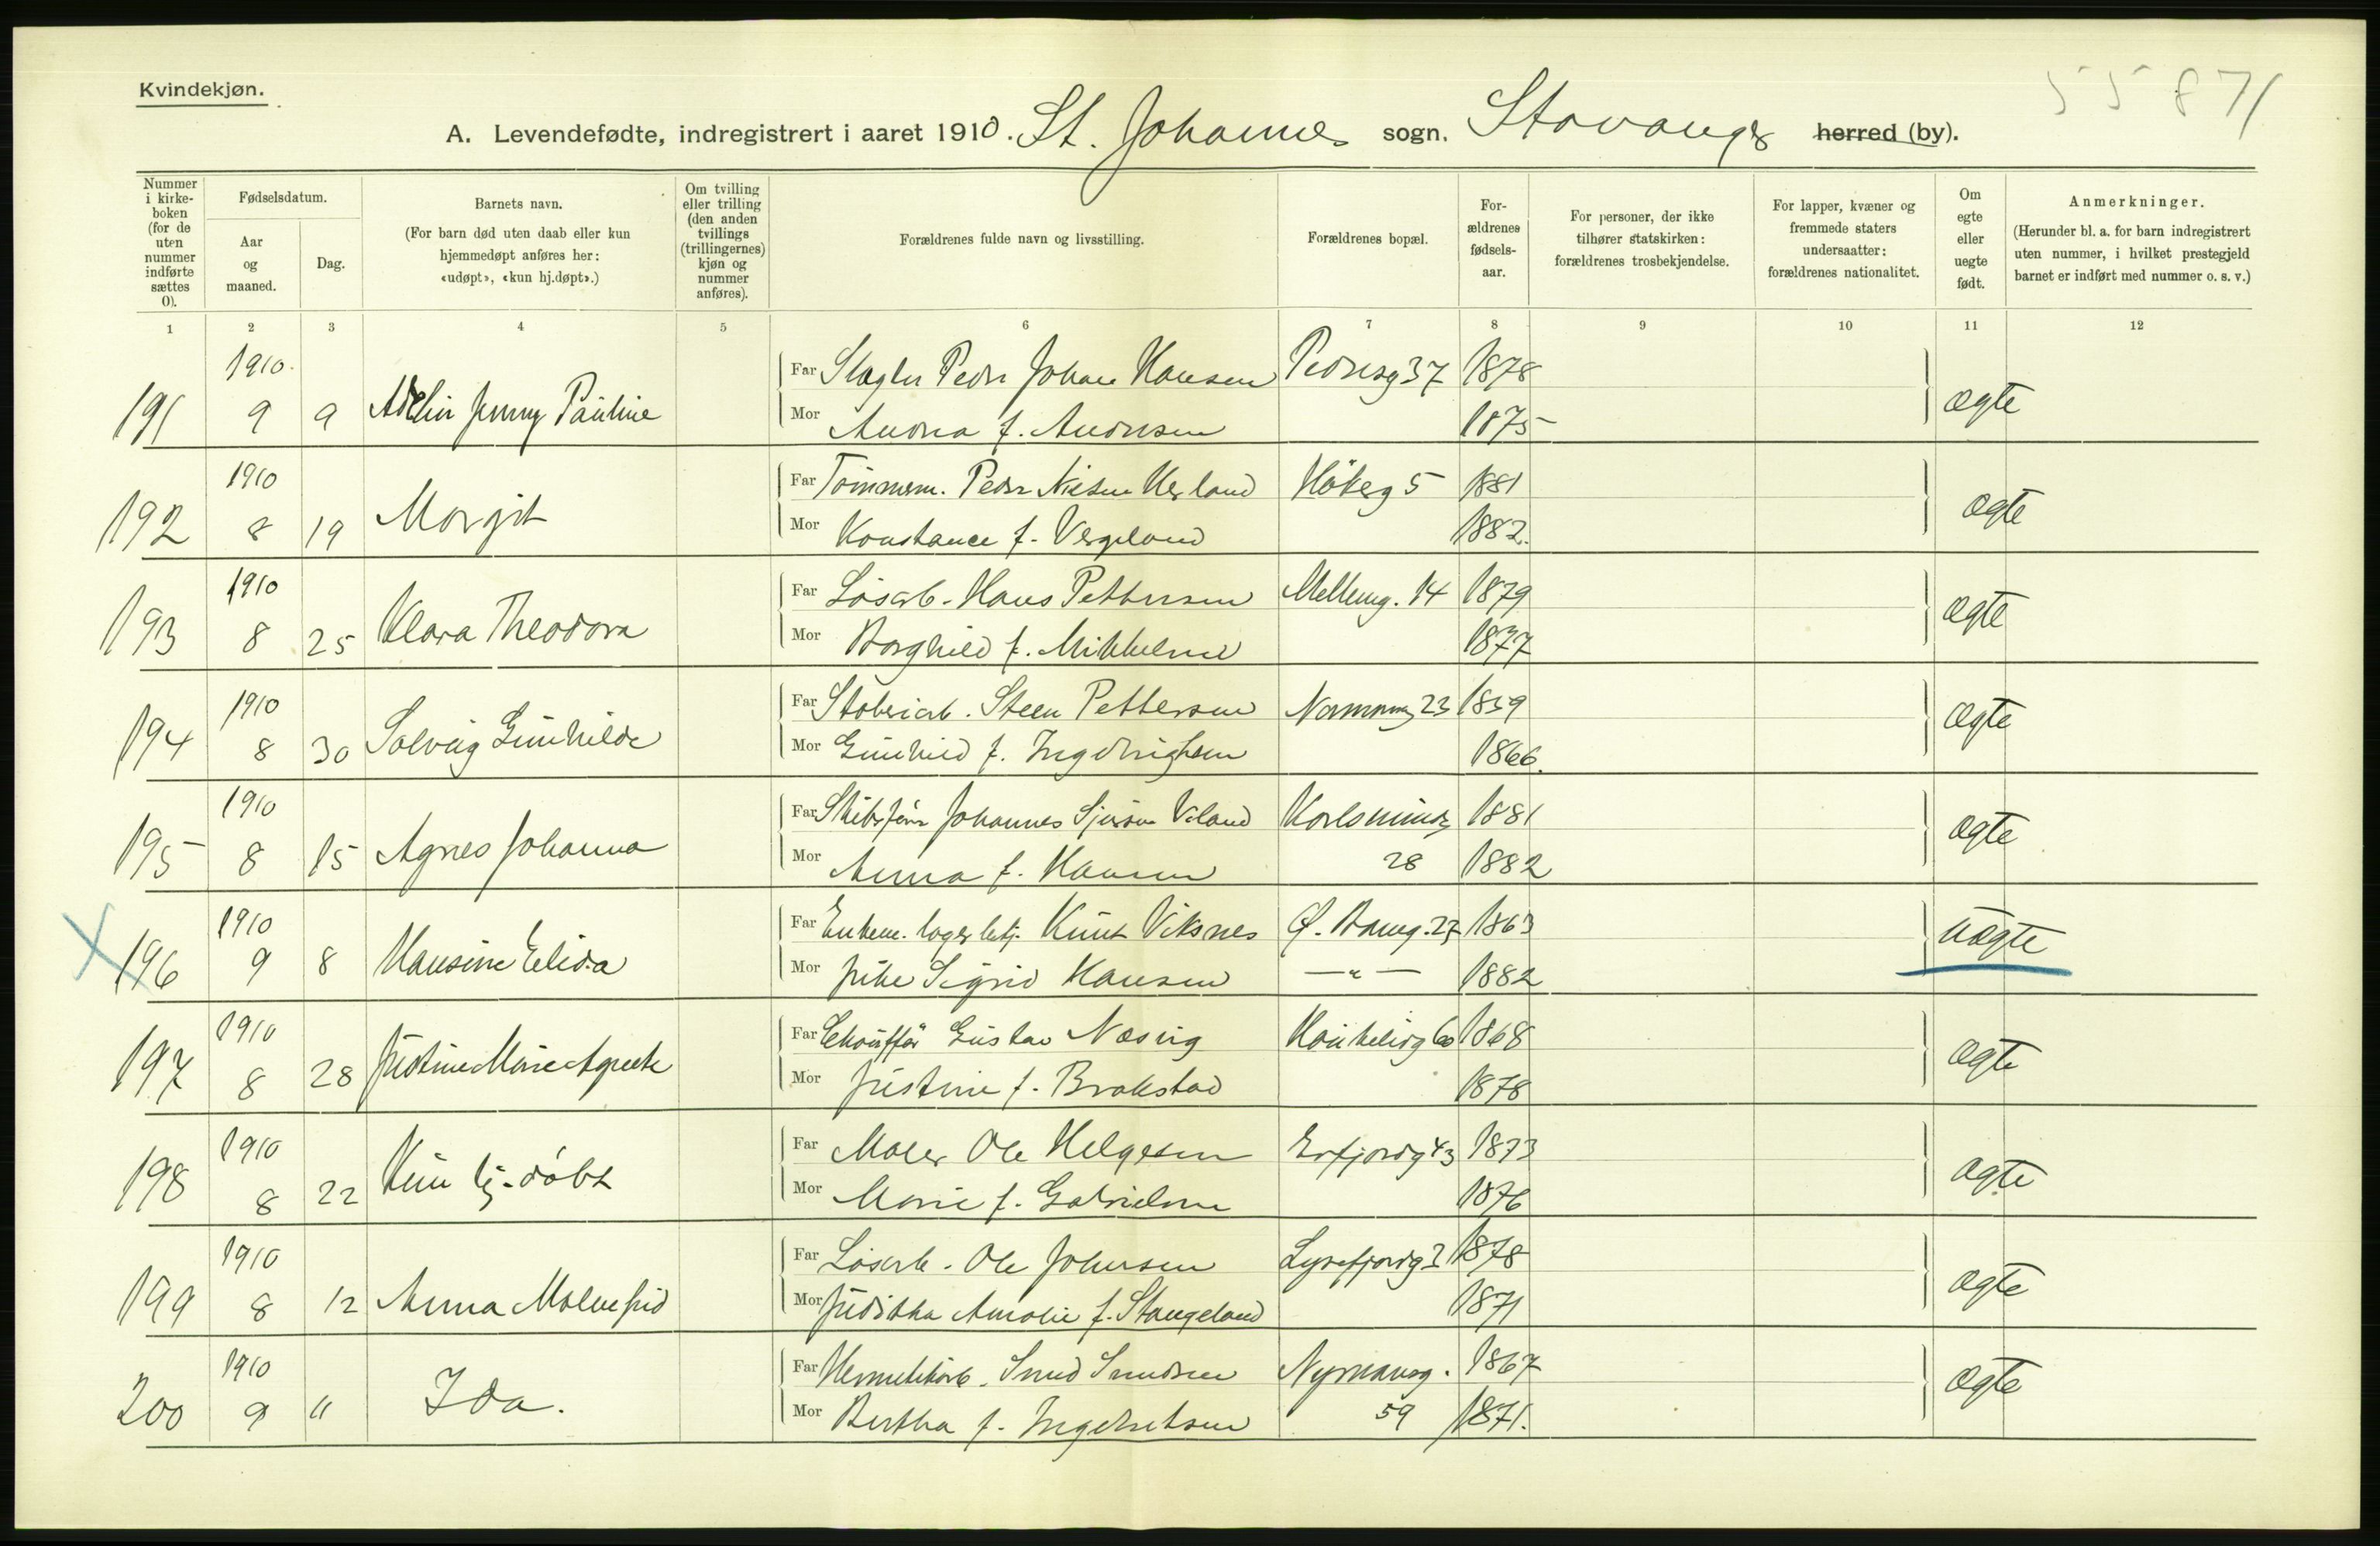 Kvindekjøn.
55871
A. Levendefødte, indregistrert i aaret 1910. St. Johannes sogn. Stavanger herred (by).
Nummer i kirke-boken (for de uten nummer indførte sættes 0).
Fødselsdatum.
Aar og maaned.
Dag.
Barnets navn.
(For barn død uten daab eller kun hjemmedøpt anføres her: «udøpt», «kun hj.døpt».)
Om tvilling eller trilling (den anden tvillings (trillingernes) kjøn og nummer anføres).
Forældrenes fulde navn og livsstilling.
Forældrenes bopæl.
For-ældrenes fødsels-aar.
For personer, der ikke tilhører statskirken: forældrenes trosbekjendelse.
For lapper, kvæner og fremmede staters undersaatter: forældrenes nationalitet.
Om egte eller uegte født.
Anmerkninger.
(Herunder bl. a. for barn indregistrert uten nummer, i hvilket prestegjeld barnet er indført med nummer o. s. v.)
1 2 3 4 5 6 7 8 9 10 11 12
1910. Far Slagter Peder Johan Hansen Pedersg 37 1878
191 9 9 Adelin Jenny Pauline Mor Andrea f. Andersen 1875 ægte
1910 Far Tømmerm. Peder Nielsen Høleg 5 1881
192 8 19 Margit Mor Konstance f. Vergeland 1882. ægte
1910 Far Løsarb. Hans Pettersen Mellemg. 14 1879
193 8 25 Klara Theodora Mor Borghild f. Mikkelsen 1877 ægte
1910 Far Støberiarb. Steen Pettersen 23 1859
194 8 30 Solveig Gunhilde Mor Gunhild f. Ingebrigtsen 1866. ægte
1910 Far Skibsfører Johannes Viland Karlsminde 1881
195 8 15 Agnes Johanna Mor Anna f. Hansen 28 1882 ægte
1910 Far Enkem. lagerbetj. Knut Viksnes Ø. Baneg. 27 1863
196 9 8 Hansine Elida Mor pike Sigrid Hansen —"— 1882 uægte
1910 Far Chauffør Gustav Næsvig Haukeligt 60 1868
197 8 28 Justine Marie Agnete Mor Justine f. Brakstad 1878 ægte
1910 Far Maler Ole Helgesen Erfjordg 43 1873
198 8 22 Kun hj. døbt Mor Marie f. Gabrielsen 1876 ægte
1910 Far Løsarb. Ole Johnsen Lysefjordg 3 1878
199 8 12 Anna Malmfrid Mor Juditha Amalie f. Stangeland 1871 ægte
1910 Far Hermetikarb. Svend Svendsen Nymansg. 1867
200 9 " Ida. Mor Bertha f. Ingebretsen 59 1871. ægte